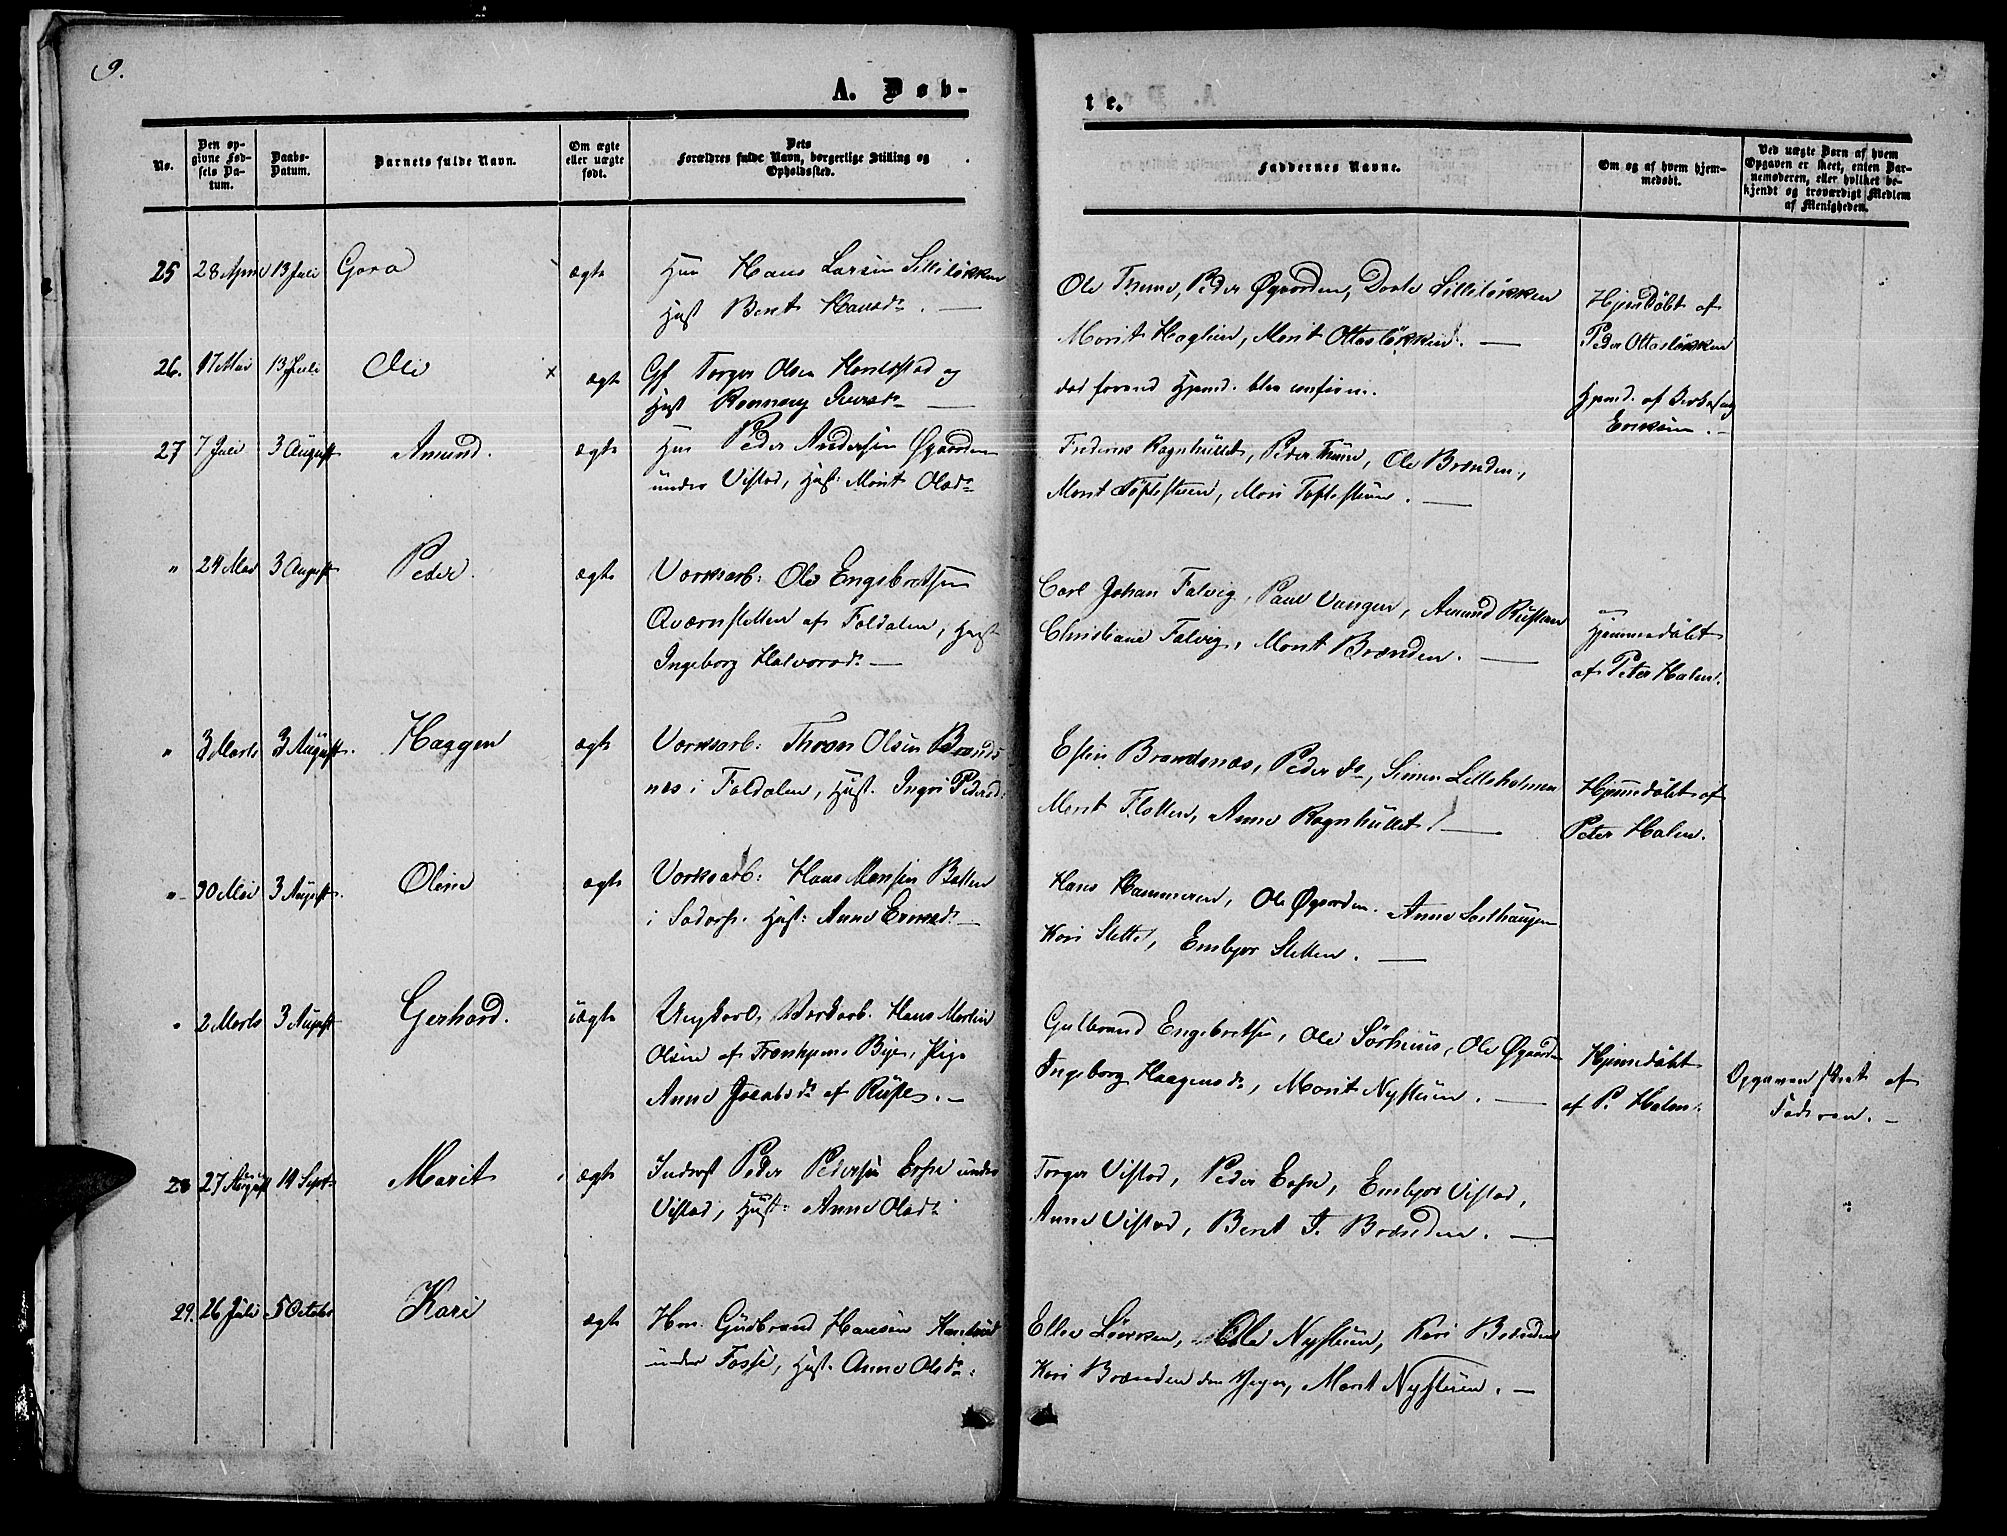 9.
A. Døb-
te.
No.
Den op-
givne Fød-
sels Da-
tum.
Daabs-
Datum.
Barnets fulde Navn.
Om ægte
eller uægte
født.
Dets
Forældres fulde Navn, borgerlige Stilling og
Opholdssted.
Faddernes Navne.
Om og af hvem hjem-
medøbt.
Ved uægte Børn af hvem
Opgaven er skeet, enten Bar-
nemoderen, eller hvilket be-
kjendt og troværdigt Medlem
af Menigheden.
25 28 April 13 Juli Goro ægte Hans Larsen Lilleløkken
Hust Berit Hansdr. —
Ole Thune, Peder Øgaarden, Dorte Lilleløkken
Marit Haglien, Marit Ottosløkken. —
Hjemdøbt af
Peder Ottosløkken
26. 17 Mai 13 Juli Ole x ægte Gf Torger Olsen og
Hust Rønnaug Iversdr —
død forend Hjemd. blev
Hjemd. af
Eriksen. —
27 7 Juli 3 August Amund. ægte Peder Andersen Øgaarden
under Vistad, Hust: Marit Olsdr
Frederik Ragnhullet, Peder Thune, Ole Brænden,
Marit Tøftestuen, Mari Toftestuen. —
" 24 Mai 3 August Peder. ægte Værksarb: Ole Engebretsen
Qværnsletten af Foldalen, Hust
Ingeborg Halvorsdr —
Carl Johan Falvig, Paul Vangen, Amund Rusten
Christiane Falvig, Marit Brænden. —
Hjemmedøbt
af Peter Holen.
" 3 Marts 3 August. Haagen ægte Værksarb: Thron Olsen Brænds
næs i Foldalen, Hust. Ingri Pedersd:
Esten Brændsnæs, Peder do, Simen Lilleholmen
Marit Flotten, Anne Ragnhullet. —
Hjemmedøbt af
Peter Holen.
" 30 Mai 3 August. Oline ægte Værksarb: Hans Monsen Bakken
i Sødorp. Hust: Anne Eriksdr —
Hans Hammeren, Ole Øgarden. Anne Sorthaugen
Kari Slette, Embjør Sletten. —
" 2 Marts 3 August Gerhard. uægte Ungkarl, Værksarb. Hans Martin
Olsen af Trondhjems By, Pige
Anne Jacobsdr af Ruste. —
Gulbrand Engebretsen, Ole Sörhuus, Ole Øgarden
Ingeborg Haagensdr, Marit Nystuen. —
Hjemmedøbt
af P. Holen.
Opgaven skeet af
Faderen. —
28 27 August 14 Sept. Marit ægte Inderst Peder Pedersen under
Vistad, Hust: Anne Olsdr
Torger Vistad, Peder, Embjør Vistad,
Anne Vistad, Berit T. Brænden. —
29. 26 Juli 5 October Kari ægte Hm. Gudbrand Hansen
under Fosse, Hust. Anne Olsdr.
Ole Nystuen, Kari Brænden
Kari Brænden den yngre, Marit Nystuen. —